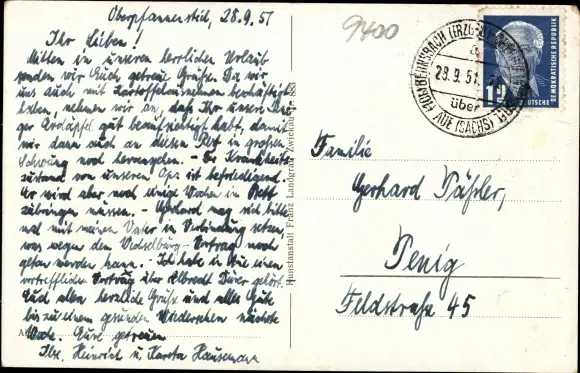 Oberpfannenstiel, 28.9.51
Ihr Lieben!
Mitten in unseren herrlichen Urlaub
senden wir Euch getreue Grüße. Da wir
uns auch mit Kartoffelausnehmen beschäftigt
haben, nehmen wir an, daß Ihr unsere
Erdäpfel gut beaufsichtigt habt, damit
wir dann auch an diesen Rest in großem
Schwung noch herangehen. - Der Krankheits-
zustand von unserem Opa ist befriedigend.
Er wird aber noch einige Wochen im Bett
zubringen müssen. - Gerhard mag sich bitte
mal mit meinem Vater in Verbindung setzen,
was wegen dem Vortrag noch
getan werden kann. - Ich habe in Aue einen
vortrefflichen Vortrag über Albrecht Dürer gehört.
Euch allen herzliche Grüße und alles Gute
bis zu einem gesunden Wiedersehen nächste
Woche. Eure getreuen
Ilse, Heinrich u. Karsta Hausmann
Kunstanstalt Franz Landgraf, Zwickau
9400
28.9.51
über
AUE (SACHS)
12
DEUTSCHE
DEMOKRATISCHE REPUBLIK
Familie
Gerhard Päßler,
Penig
Feldstraße 45